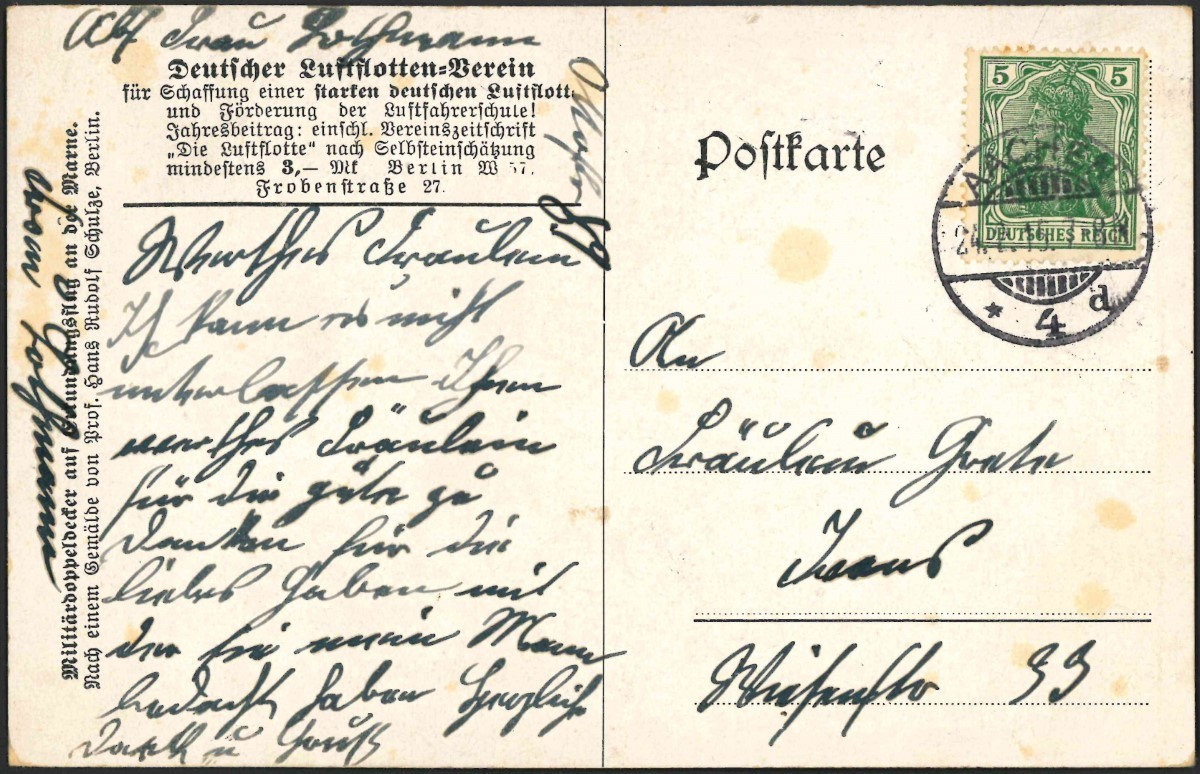 Abs Frau Rothmann
Deutscher Luftflotten=Verein
für Schaffung einer starken deutschen Luftflott
und Förderung der Luftfahrerschule!
Jahresbeitrag: einschl. Vereinszeitschrift
„Die Luftflotte“ nach Selbsteinschätzung
mindestens 3,— Mk Berlin W 57.
Frobenstraße 27.
89
Werthes Fräulein
Ich kann es nicht
unterlassen Ihnen
werthes Fräulein
für die güte zu
danken für die
liebes Gaben mit
der sie mein Mann
bedacht haben Herzlich
Dank u Gruß
Rothmann
Militärdoppeldecker auf Erkundungsflug an der Marne.
Nach einem Gemälde von Prof. Hans Rudolf Schulze, Berlin.
Postkarte
5 5
DEUTSCHES REICH
AACHEN
* 4 d
An
Fräulein Grete
Wiesenstr 33